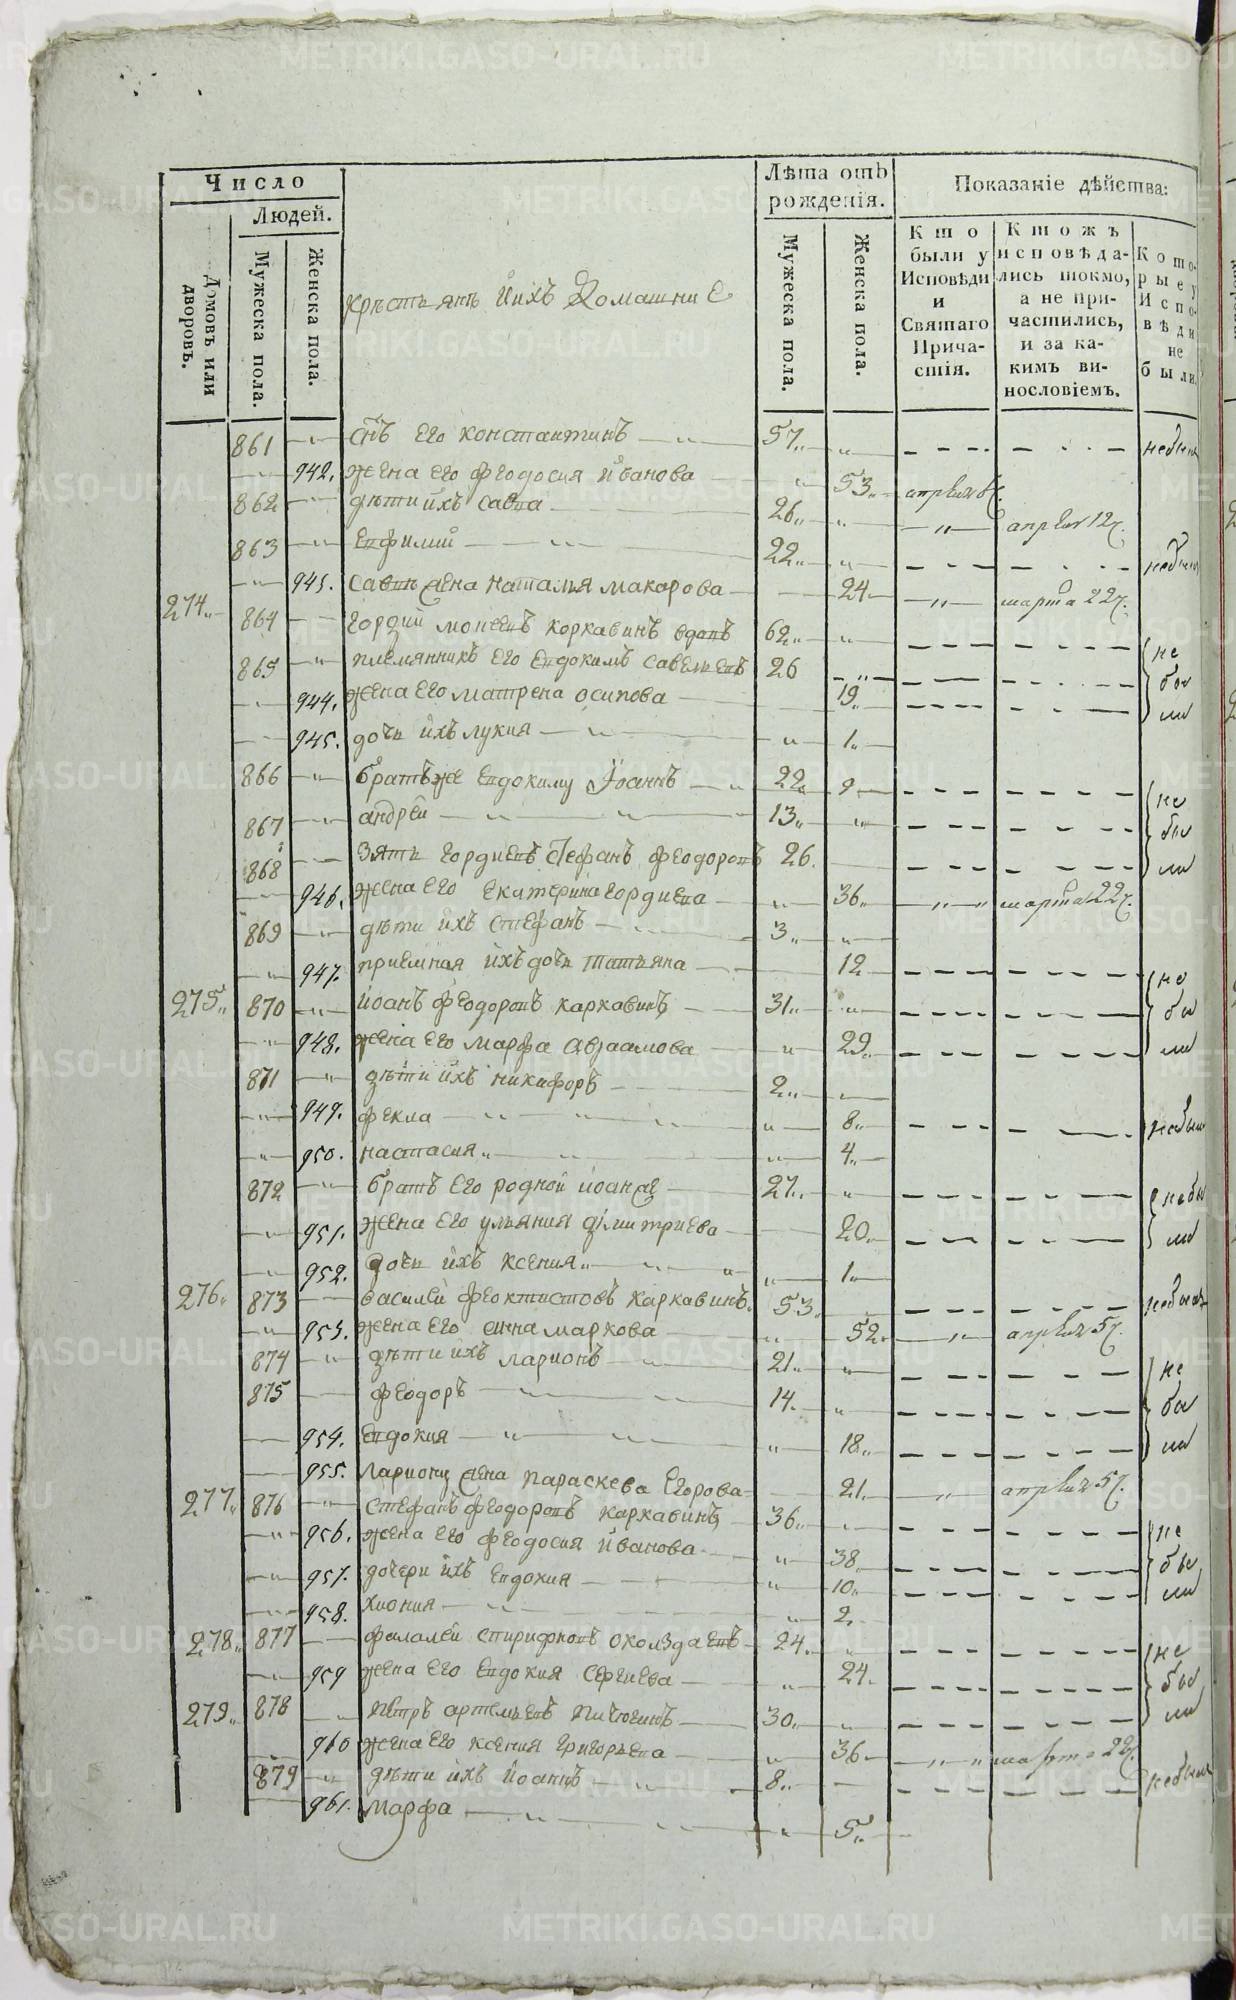 Число
Людей.
Домовъ или дворовъ.
Мужеска пола.
Женска пола.
Лѣта отъ рожденія.
Мужеска пола.
Женска пола.
Показаніе дѣйства:
Кто были у Исповѣди и Святаго Причастія.
Ктожъ исповѣдались токмо, а не причастились, и за какимъ винословіемъ.
Которые у Исповѣди не были.
крестьянъ и ихъ Домашние
861 снъ его константинъ 57 небыли
942. жена его феодосия иванова 53
862 дѣти ихъ савва 26 апреля 12
863 Евфимий 22 небыли
943. саввы жена наталья макарова 24 марта 22
274 864 гордий моисеевъ коркавинъ вдовъ 62 не
865 племянникъ его евдокимъ савельевъ 26 бы
944. жена его матрена осипова 19 ли
945. дочь ихъ лукия 1
866 братъ же евдокиму иоаннъ 22 не
867 андрей 13 бы
868 зять гордиевъ стефанъ феодоровъ 26. ли
946. жена его екатерина гордиева 36 марта 22
869 дѣти ихъ стефанъ 3
947. приемная ихъ дочь татьяна 12 не
275 870 иоанъ феодоровъ каркавинъ 31 бы
948. жена его марфа авраамова 29 ли
871 дѣти ихъ никифоръ 2
949. фекла 8 небыли
950. настасия 4
872 братъ его родной иоанъ же 27 небы
951. жена его ульяния димитриева 20 ли
952. дочь ихъ ксения 1
276 873 василей феоктистовъ каркавинъ 53 небылъ
953. жена его анна маркова 52 апреля 5
874 дѣти ихъ ларионъ 21 не
875 феодоръ 14 бы
954. евдокия 18 ли
955. лариону жена параскева егорова 21 апреля 5
277 876 стефанъ феодоровъ каркавинъ 36 не
956. жена его феодосия иванова 38 бы
957. дочери ихъ евдокия 10 ли
958. хиония 2
278 877 фалалей спиридоновъ 24 не
959 жена его евдокия сергиева 24 бы
279 878 петръ артемьевъ пичюгинъ 30 ли
960 жена его ксения григорьева 36 марта 22
879 дѣти ихъ иоаннъ 8 небыли
961. марфа 5
METRIKI.GASO-URAL.RU